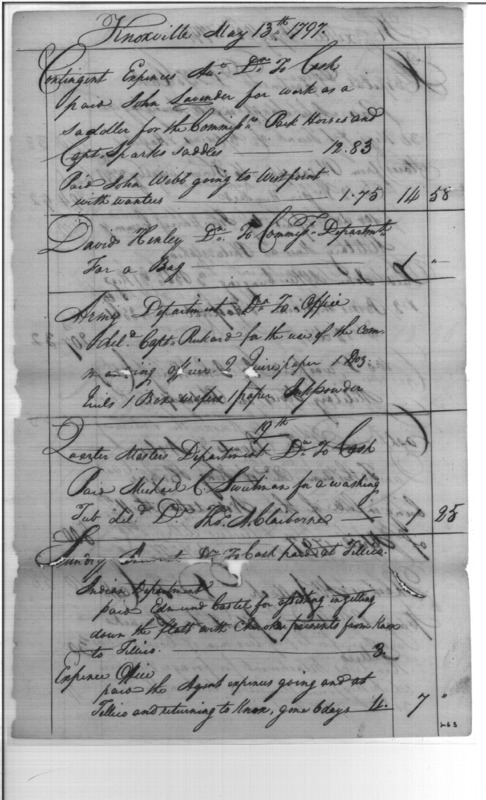 Knoxville May 13th 1797.
Contingent Expences Acco. Dr. To Cash
paid John Lavender for work as a
saddler for the Commissrs. Pack Horses and
Capt. Sparks saddles 12.83
Paid John Webb going to Westpoint
with wanters 1.75 14 58
David Henley Dr. To Commissy. Department
For a Bag
Army Department Dr. To Office
Deld. Capt. Rickard for the use of the com
manding officer 2 Quire paper 1 Doz
Quils 1 Box wafers 1 paper Inkpowder
19th
Quarter Masters Department Dr. To Cash
Paid Michael C. for a washing
Tub deld. Dr. Thos. A. Claiborne 1 25
Sundry Dr. To Cash paid at Tellico.
Indian Department
paid Edmund for assisting in getting
down the flats with presents from Knox
to Tellico. 3.
Expence Office
paid the Agent expences going and at
Tellico and returning to Knox, gone 6 days 4. 7 "